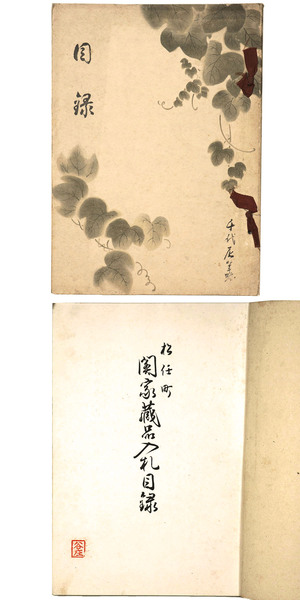 目録
千代尼筆
松任町
関家蔵品入札目録